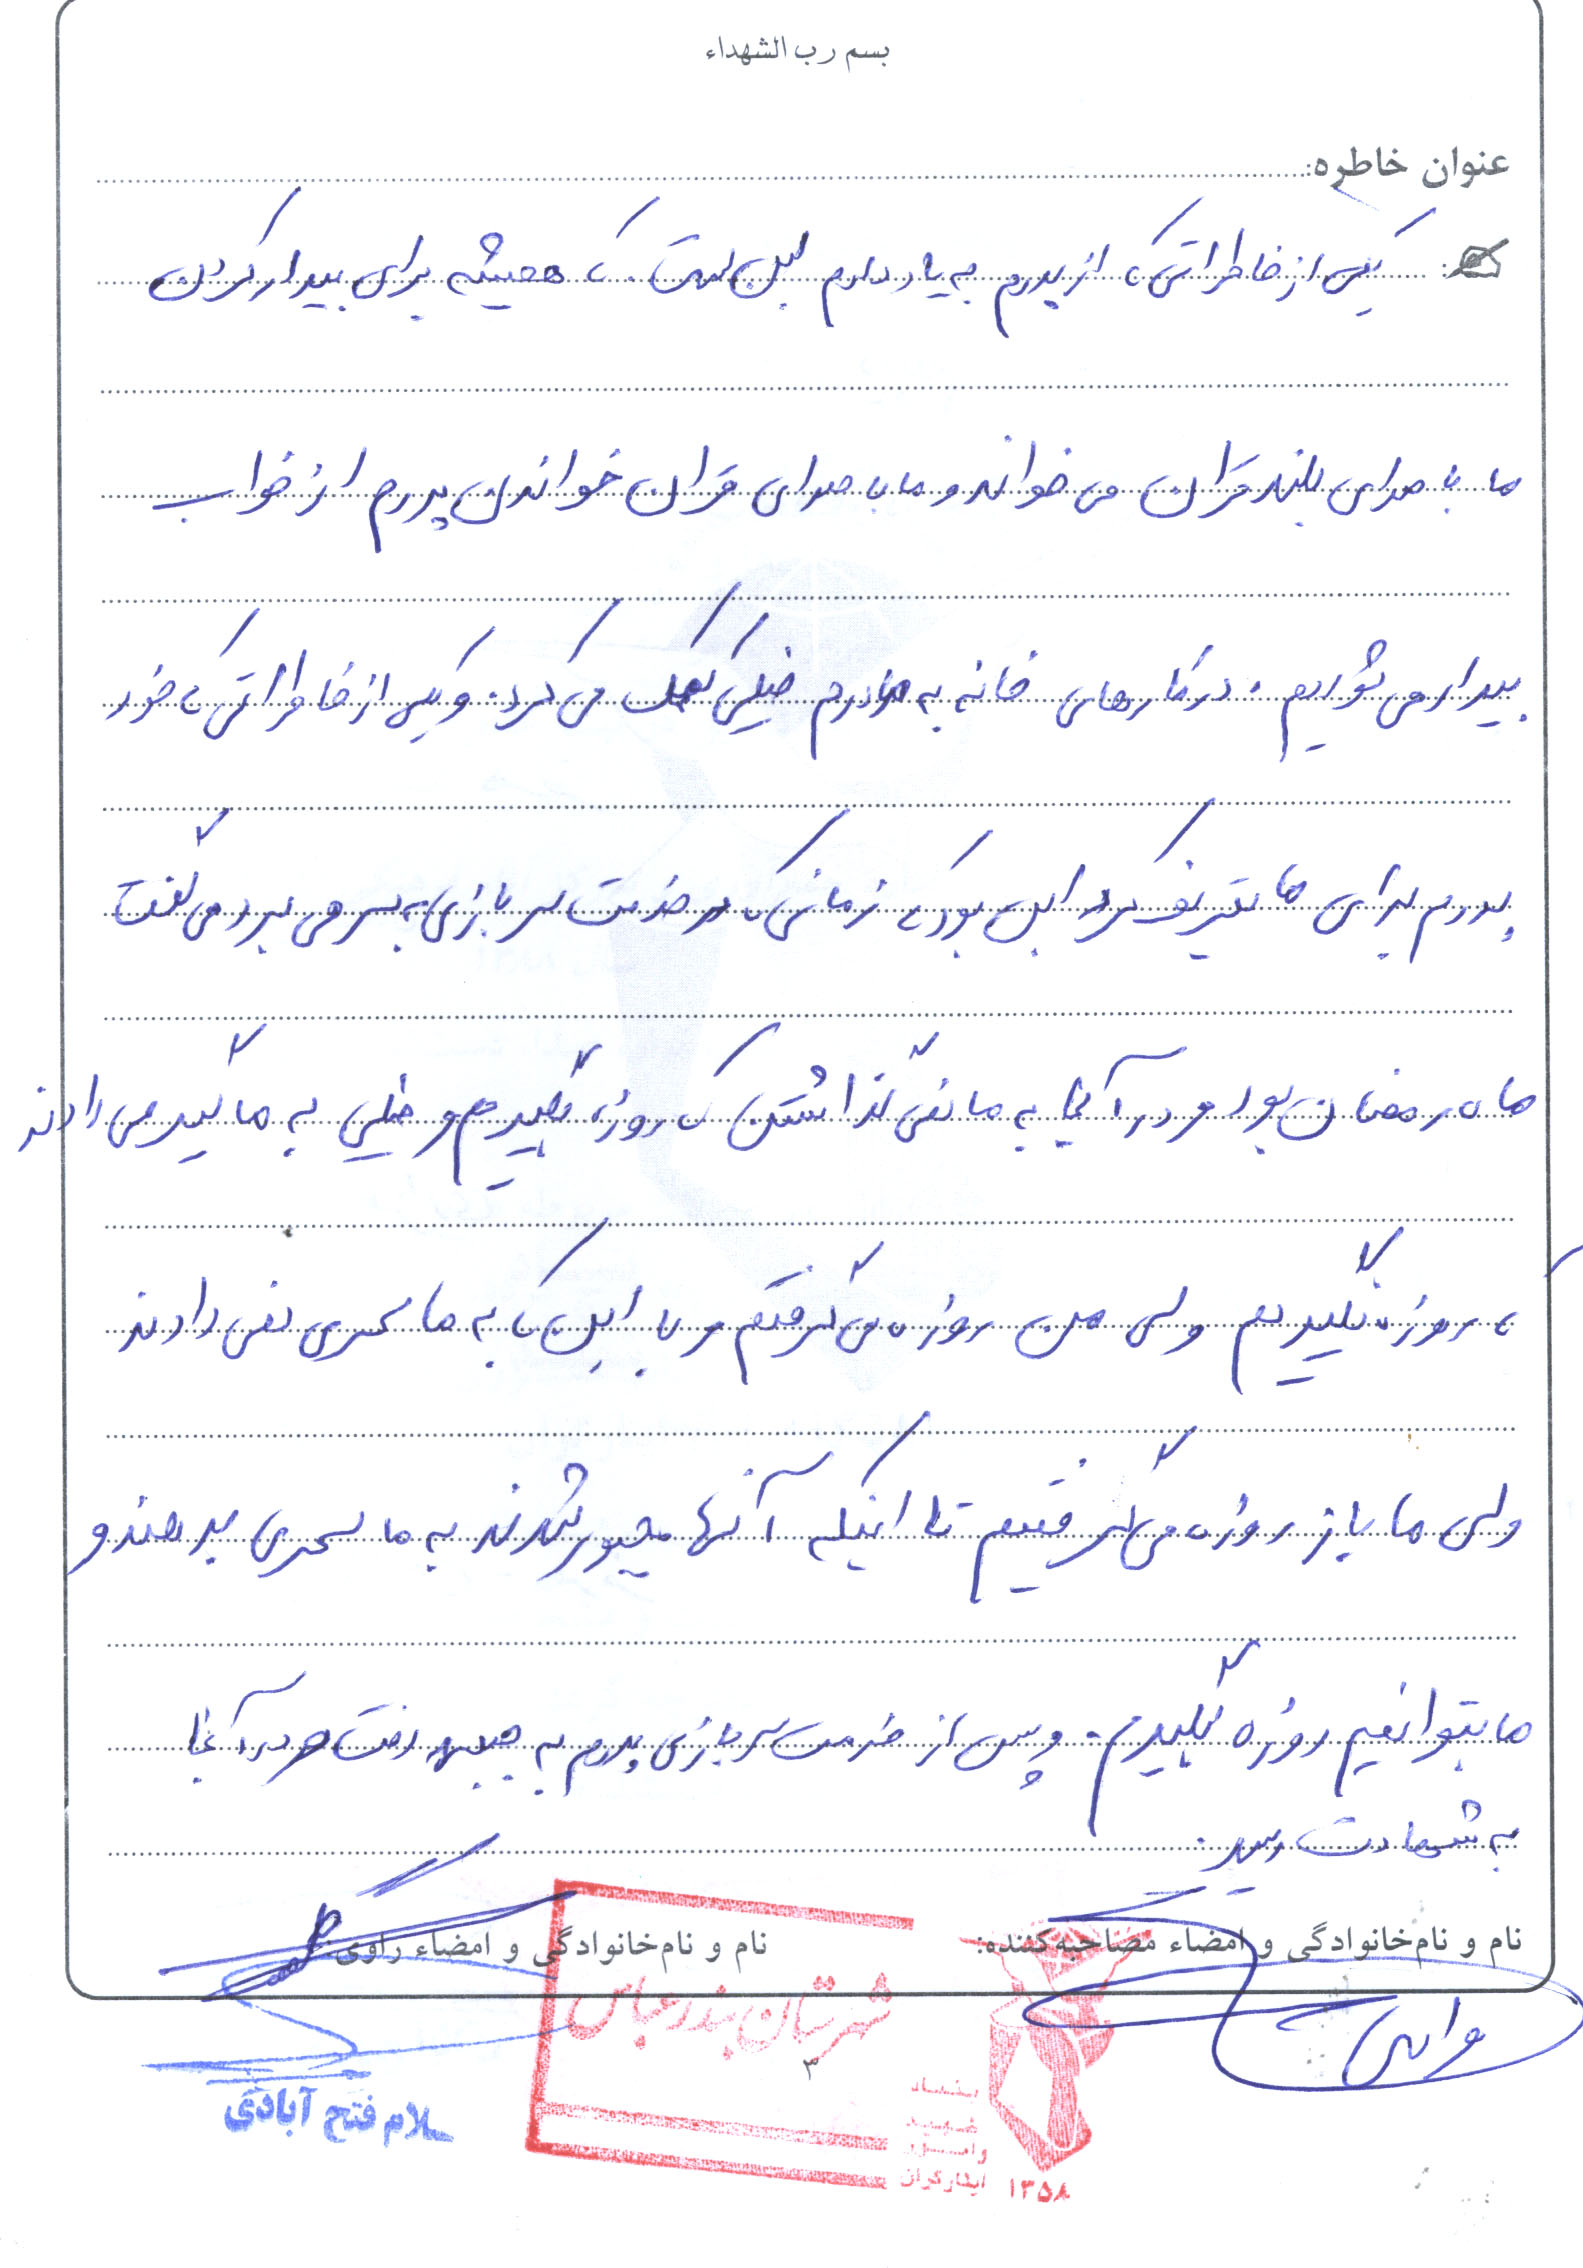 بسم رب الشهداء
عنوان خاطره:
یکی از خاطراتی که از پدرم به یاد دارم این است که همیشه برای بیدار کردن
ما با صدای بلند قرآن می خواند و ما با صدای قرآن خواندن پدرم از خواب
بیدار می شدیم. در کارهای خانه به مادرم خیلی کمک می کرد. و یکی از خاطراتی که خود
پدرم برای ما تعریف کرد این بود که زمانی که در خدمت سربازی به سر می برد می گفت
ماه رمضان بود و در آنجا به ما نمی گذاشتن که روزه بگیریم و خیلی به ما گیر می دادند
که روزه نگیریم ولی من روزه می گرفتم و با این که به ما سحری نمی دادند
ولی ما باز روزه می گرفتیم تا اینکه آنها مجبور شدند به ما سحری بدهند و
ما بتوانیم روزه بگیریم. و پس از خدمت سربازی پدرم به جبهه رفت و در آنجا
به شهادت رسید.
نام و نام خانوادگی و امضاء مصاحبه کننده:
نام و نام خانوادگی و امضاء راوی:
شهرستان بندرعباس
۳
بنیاد
شهید
و امور
ایثارگران
۱۳۵۸
سلام فتح آبادی